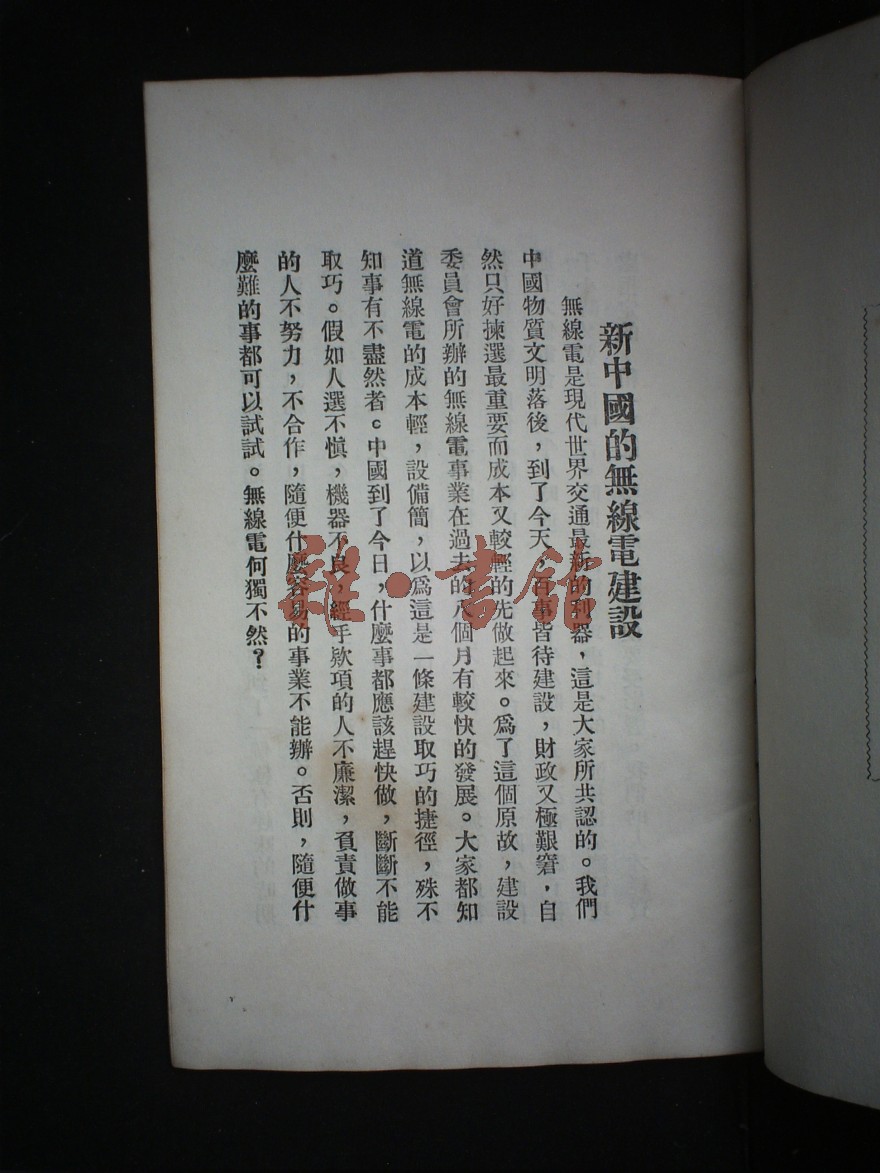 新中國的無線電建設
無線電是現代世界交通最新的利器，這是大家所共認的。我們
中國物質文明落後，到了今天，百事皆待建設，財政又極艱窘，自
然只好揀選最重要而成本又較輕的先做起來。爲了這個原故，建設
委員會所辦的無線電事業在過去的八個月有較快的發展。大家都知
道無線電的成本輕，設備簡，以爲這是一條建設取巧的捷徑，殊不
知事有不盡然者。中國到了今日，什麼事都應該趕快做，斷斷不能
取巧。假如人選不慎，機器不良，經手欵項的人不廉潔，負責做事
的人不努力，不合作，隨便什麼容易的事業不能辦。否則，隨便什
麼難的事都可以試試。無線電何獨不然？
雜·書館